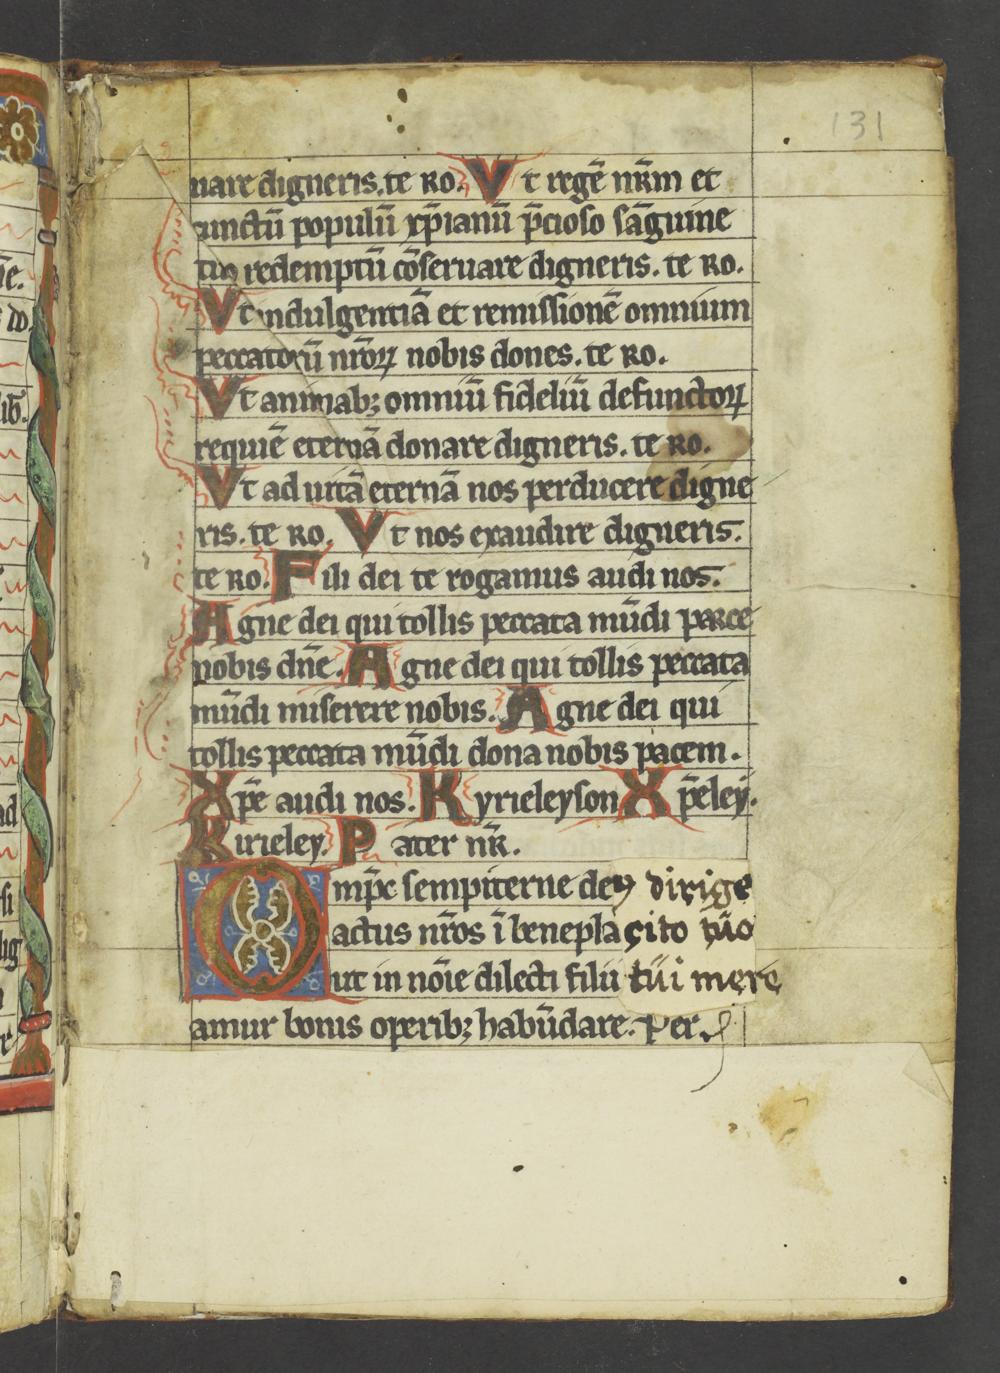 131
nare digneris. te ro. Vt regē nr̄m et
cunctū populū xp̄ianū p̄cioso sāguine
tuo redemptū cōseruare digneris. te ro.
Vt indulgentiā et remissionē omnium
peccatorū nr̄oꝝ nobis dones. te ro.
Vt animabꝫ omniū fideliū defunctoꝝ
requiē eternā donare digneris. te ro.
Vt ad uitā eternā nos perducere digne
ris. te ro. Vt nos exaudire digneris.
te ro. Fili dei te rogamus audi nos.
Agne dei qui tollis peccata mūdi parce
nobis dn̄e. Agne dei qui tollis peccata
mūdi miserere nobis. Agne dei qui
tollis peccata mūdi dona nobis pacem.
Xp̄e audi nos. Kyrieleyson Xp̄eley.
Kirieley. Pater nr̄.
Omp̄c sempiterne deꝯ dirige
actus nr̄os ī beneplacito tuo
ut in nōie dilecti filii tui mere
amur bonis operibꝫ habūdare. per